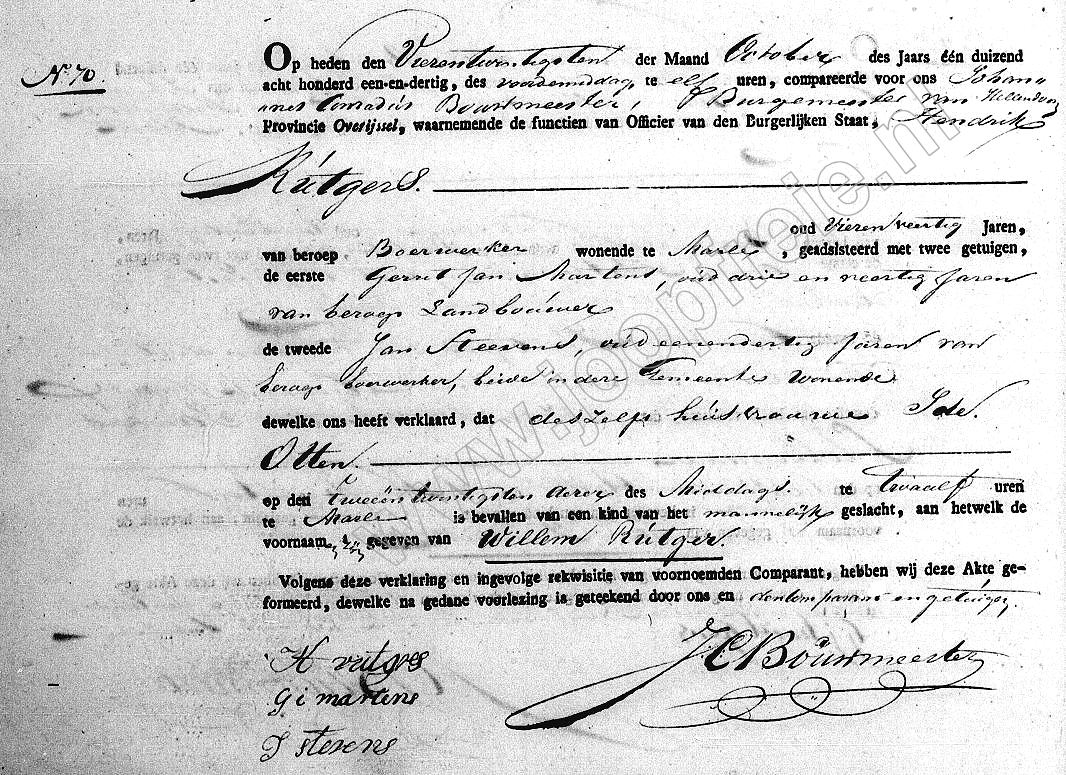 No 70.
Op heden den Vierentwintigsten der Maand October des Jaars één duizend
acht honderd een-en-dertig, des voordemiddag te elf uren, compareerde voor ons Johan
nes Conradus Bouwmeester, Burgemeester van Hellendoorn
Provincie Overijssel, waarnemende de functien van Officier van den Burgerlijken Staat, Hendrik
Rútgers.
oud Vierenveertig Jaren,
van beroep Boerwerker wonende te Marle, geadsisteerd met twee getuigen,
de eerste Gerrit Jan Martens, oud drie en veertig Jaren
van beroep Landboúwer
de tweede Jan Steevens, oud eenendertig Jaren van
beroep boerwerker, beide in dese Gemeente Wonende
dewelke ons heeft verklaard, dat deszelfs húisvrouwe
Otten.
op den tweeëntwintigsten dezer des Middags. te twaalf uren
te Marle is bevallen van een kind van het mannelijk geslacht, aan hetwelk de
voornaam is gegeven van Willem Rútger.
Volgens deze verklaring en ingevolge rekwisitie van voornoemden Comparant, hebben wij deze Akte ge-
formeerd, dewelke na gedane voorlezing is geteekend door ons en den Comparant en getuigen.
H rutgers
JCBoúwmeester
G i martens
J stevens
www.joopneie.nl